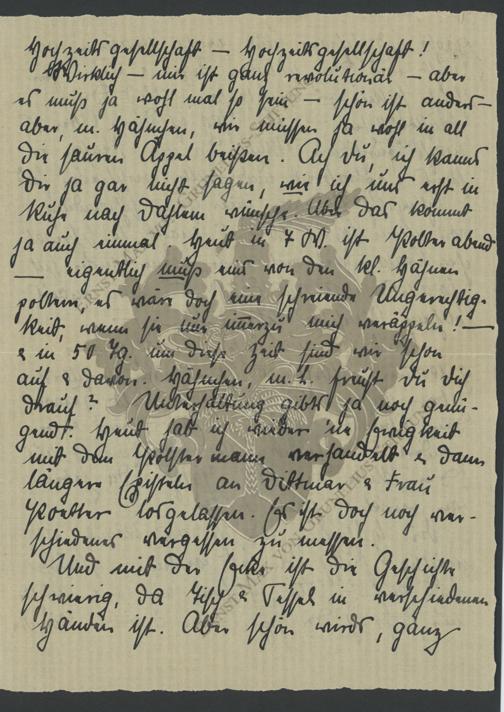 Hochzeitsgesellschaft — Hochzeitsgesellschaft!
Wirklich — mir ist ganz revolutionär — aber
es muß ja wohl mal so sein — schön ist anders —
aber, m. Hähnchen, wir müssen ja wohl in all
die sauren Äppel beißen. Ach du, ich kanns
dir ja gar nicht sagen, wie ich uns erst in
Ruhe nach Dahlem wünsche. Aber das kommt
ja auch einmal. Heut in 7 W. ist Polterabend
— eigentlich muß eins von den kl. Hähnen
poltern, es wäre doch eine schreiende Ungerechtig-
keit, wenn sie nur immerzu mich veräppeln! —
& in 50 Tg. um diese Zeit sind wir schon
auf & davon. Hähnchen, m. L. freust du dich
drauf? Unterhaltung gibts ja noch genü-
gend. Heut hab ich wieder 'ne Ewigkeit
mit dem Polstermann verhandelt & dann
längere Episteln an Dittmar & Frau
losgelassen. Es ist doch noch ver-
schiedenes vergessen zu messen.
Und mit der Ecke ist die Geschichte
schwierig, da Tisch & Sessel in verschiedenen
Händen ist. Aber schön wirds, ganz